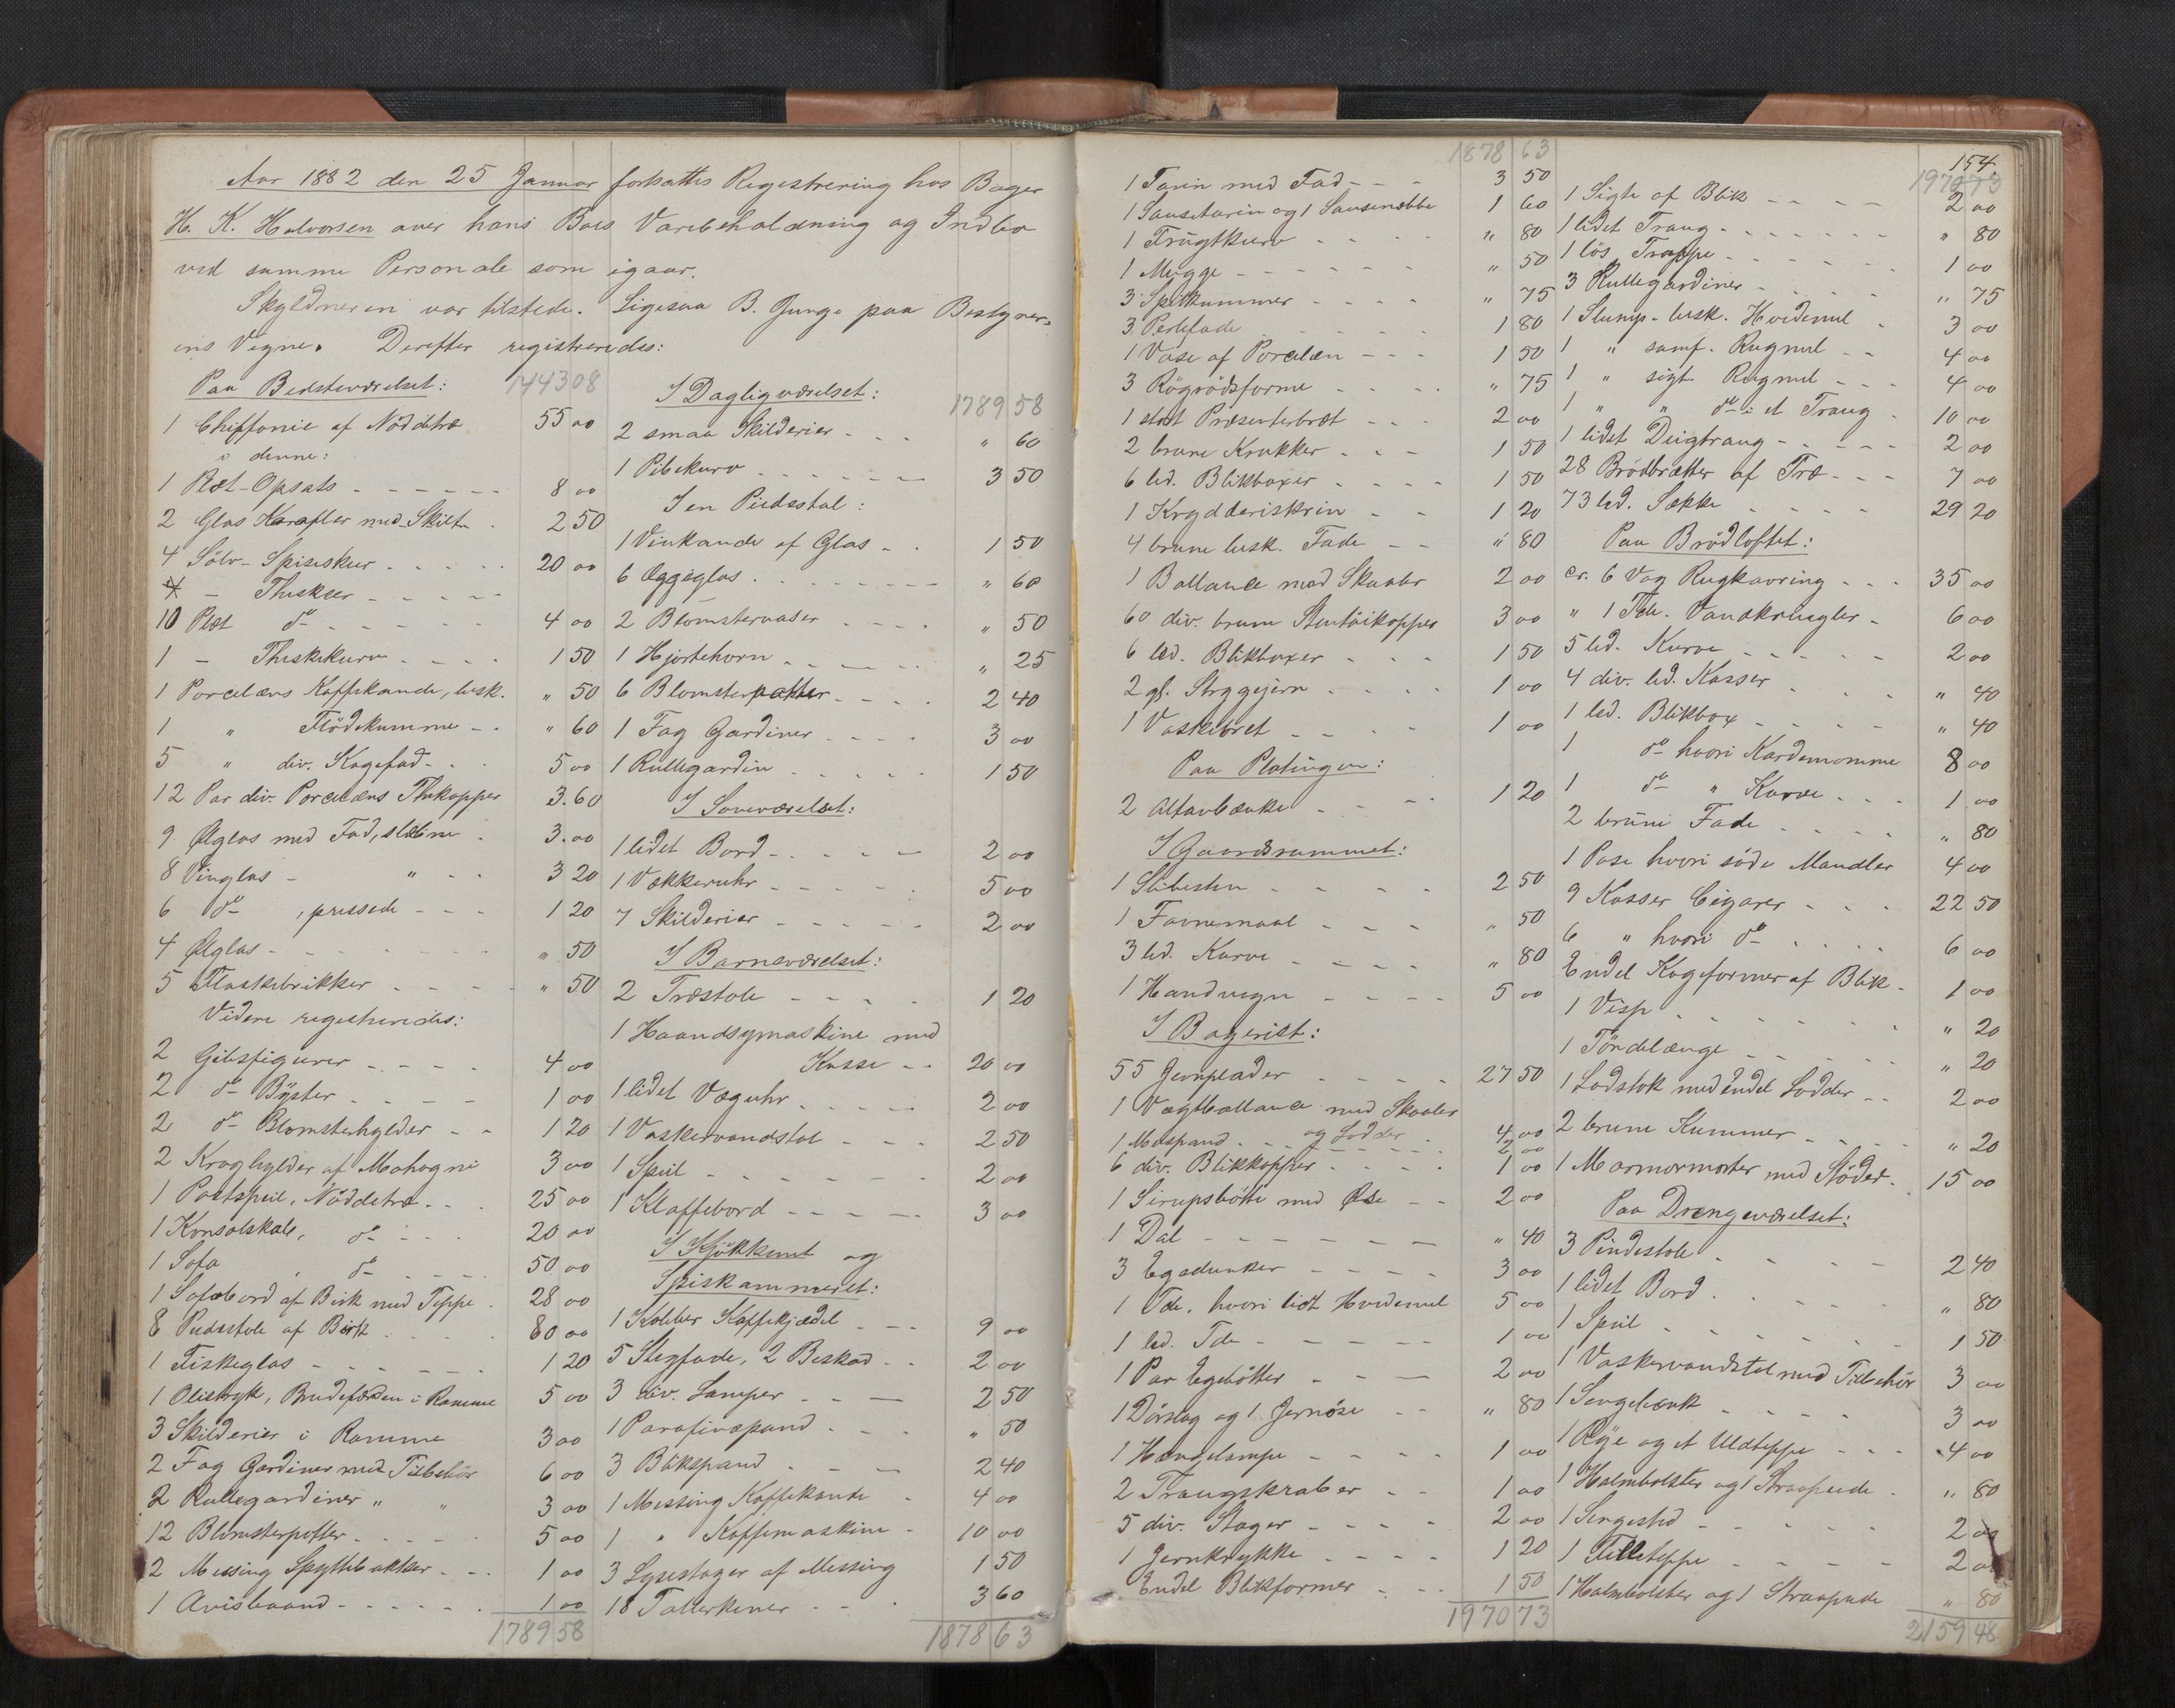 Aar 1882 den 25 Januar fortsattes Registrering hos Bager
H. K. Halvorsen over hans Boes Varebeholdning og Indbo
ved samme Personale som igaar.
Skyldneren var tilstede. Ligesaa B. Junge paa Bestyrer=
ens Vegne. Derefter registreredes:
Paa Bedsteværelset: 1443 08
1 Chiffonie af Nöddetræ 55 00
i denne:
1 Plet-Opsats 8 00
2 Glas Karafler med Skilt 2 50
4 Sölv-Spiseskeer 20 00
4 - Theskeer
10 Plet do 4 00
1 - Theskekurv 1 50
1 Porcelæns Kaffekande, besk. " 50
1 " Flödekumme " 60
5 " div. Kagefad 5 00
12 Par div. Porcelæns Thekopper 3.60
9 Ølglas med Fad, slebne 3.00
8 Vinglas - " 3 20
6 do , pressede 1 20
4 Ølglas " 50
5 Flaskebrikker " 50
Videre registreredes:
2 Gibsfigurer 4 00
2 do Byster 1 00
2 do Blomsterhylder 1 20
2 Kroghylder af Mahogni 3 00
1 Portspeil, Nöddetræ 25 00
1 Konsolskab, do 20 00
1 Sofa , do 50 00
1 Sofabord af Birk med Teppe 28 00
8 Pudestole af Birk 80 00
1 Fiskeglas 1 20
1 Olietryk, Brudefærden i Ramme 5 00
3 Skilderier i Ramme 3 00
2 Fag Gardiner med Tilbehör 6 00
2 Rullegardiner " " 3 00
12 Blomsterpotter 5 00
2 Messing Spyttebakker 1 00
1 Avisbaand 1 00
1789 58
I Dagligværelset: 1789 58
2 smaa Skilderier " 60
1 Pibekurv 3 50
I en Piedestal:
1 Vinkande af Glas 1 50
6 Æggeglas " 60
2 Blomstervaser " 50
1 Hjortehorn " 25
6 Blomsterpotter 2 40
1 Fag Gardiner 3 00
1 Rullegardin 1 50
I Soveværelset:
1 lidet Bord 2 00
1 Vækkeruhr 5 00
7 Skilderier 2 00
I Barneværelset:
2 Træstole 1 20
1 Haandsymaskine med
Kasse 20 00
1 lidet Væguhr 2 00
1 Vaskervandstol 2 50
1 Speil 2 00
1 Klaffebord 3 00
I Kjökkenet og
Spiskammeret:
1 Kobber Kaffekjedel 9 00
5 Stegfade, 2 Beskad. 2 00
3 div. Lamper 2 50
1 Parafinspand " 50
3 Blikspand 2 40
1 Messing Kaffekande 4 00
1 " Kaffemaskine 10 00
3 Lysestager af Messing 1 50
18 Tallerkener 3 60
1878 63
1878 63
1 Tarin med Fad 3 50
1 Sausetarin og 1 Sausenæbbe 1 60
1 Frugtkurv " 80
1 Mugge " 50
3 Spilkummer " 75
3 Perlefade 1 80
1 Vase af Porcelæn 1 50
3 Rögrödsforme " 75
1 stort Præsenterbræt 2 00
2 brune Krukker 1 50
6 led. Blikboxer 1 50
1 Krydderiskrin 1 20
4 brune besk. Fade " 80
1 Ballance med Skaaler 2 00
60 div. brune Stentöikopper 3 00
6 led. Blikboxer 1 50
2 gl. Strygejern 1 00
1 Vaskebret 1 00
Paa Platingen:
2 Altanbænke 1 20
I Gaardsrummet:
1 Slibesten 2 50
1 Favnemaal " 50
3 led. Kurve " 80
1 Handvogn 5 00
I Bageriet:
55 Jernplader 27 50
1 Vægtballance med Skaaler
og Lodder 4 00
1 Messpand 2 00
6 div. Blikkopper 1 00
1 Sirupsbötte med Øse 2 00
1 Dal " 40
3 Egedunker 3 00
1 Tde. hvori lidt Hvedemel 5 00
1 led. Tde 1 00
1 Par Egebötter 2 00
1 Dörslag og 1 Jernöse " 80
1 Hængelampe 1 00
2 Traugskraber 1 00
5 div. Stager 2 00
1 Jernkrykke 1 20
Endel Blikformer 1 50
1970 73
154.
1970 73
1 Sigte af Blik 2 00
1 lidet Traug " 80
1 lös Trappe 1 00
3 Rullegardiner " 75
1 Slump besk. Hvedemel 3 00
1 " samf. Rugmel 4 00
1 " sigt. Rugmel 4 00
1 " " do i et Traug 10 00
1 lidet Deigtraug 2 00
28 Brödbrætter af Træ 7 00
73 led. Sække 29 20
Paa Brödloftet:
cr. 6 Vog Rugkavring 35 00
" 1 Tde. Vandkringler 6 00
5 led. Kurve 2 00
4 div. led. Kasser " 40
1 led. Blikbox " 40
1 do hvori Kardemomme 8 00
1 do " Karve 1 00
2 brune Fade " 80
1 Pose hvori söde Mandler 4 00
9 Kasser Cigarer 22 50
6 " hvori do 6 00
Endel Kageformer af Blik 1 00
1 Visp " 20
1 Töndelænge " 20
1 Lodstok med endel Lodder 2 00
2 brune Kummer " 20
1 Marmormorter med Stöder 15 00
Paa Drengeværelset:
3 Pindestole 2 40
1 lidet Bord " 80
1 Speil 1 50
1 Vaskervandstol med Tilbehör 3 00
1 Sengebænk 3 00
1 Rye og et Uldteppe 4 00
1 Halmbolster og 1 Straapude " 80
1 Sengested 2 00
1 Filleteppe 2 00
1 Halmbolster og 1 Straapude " 80
2159 48